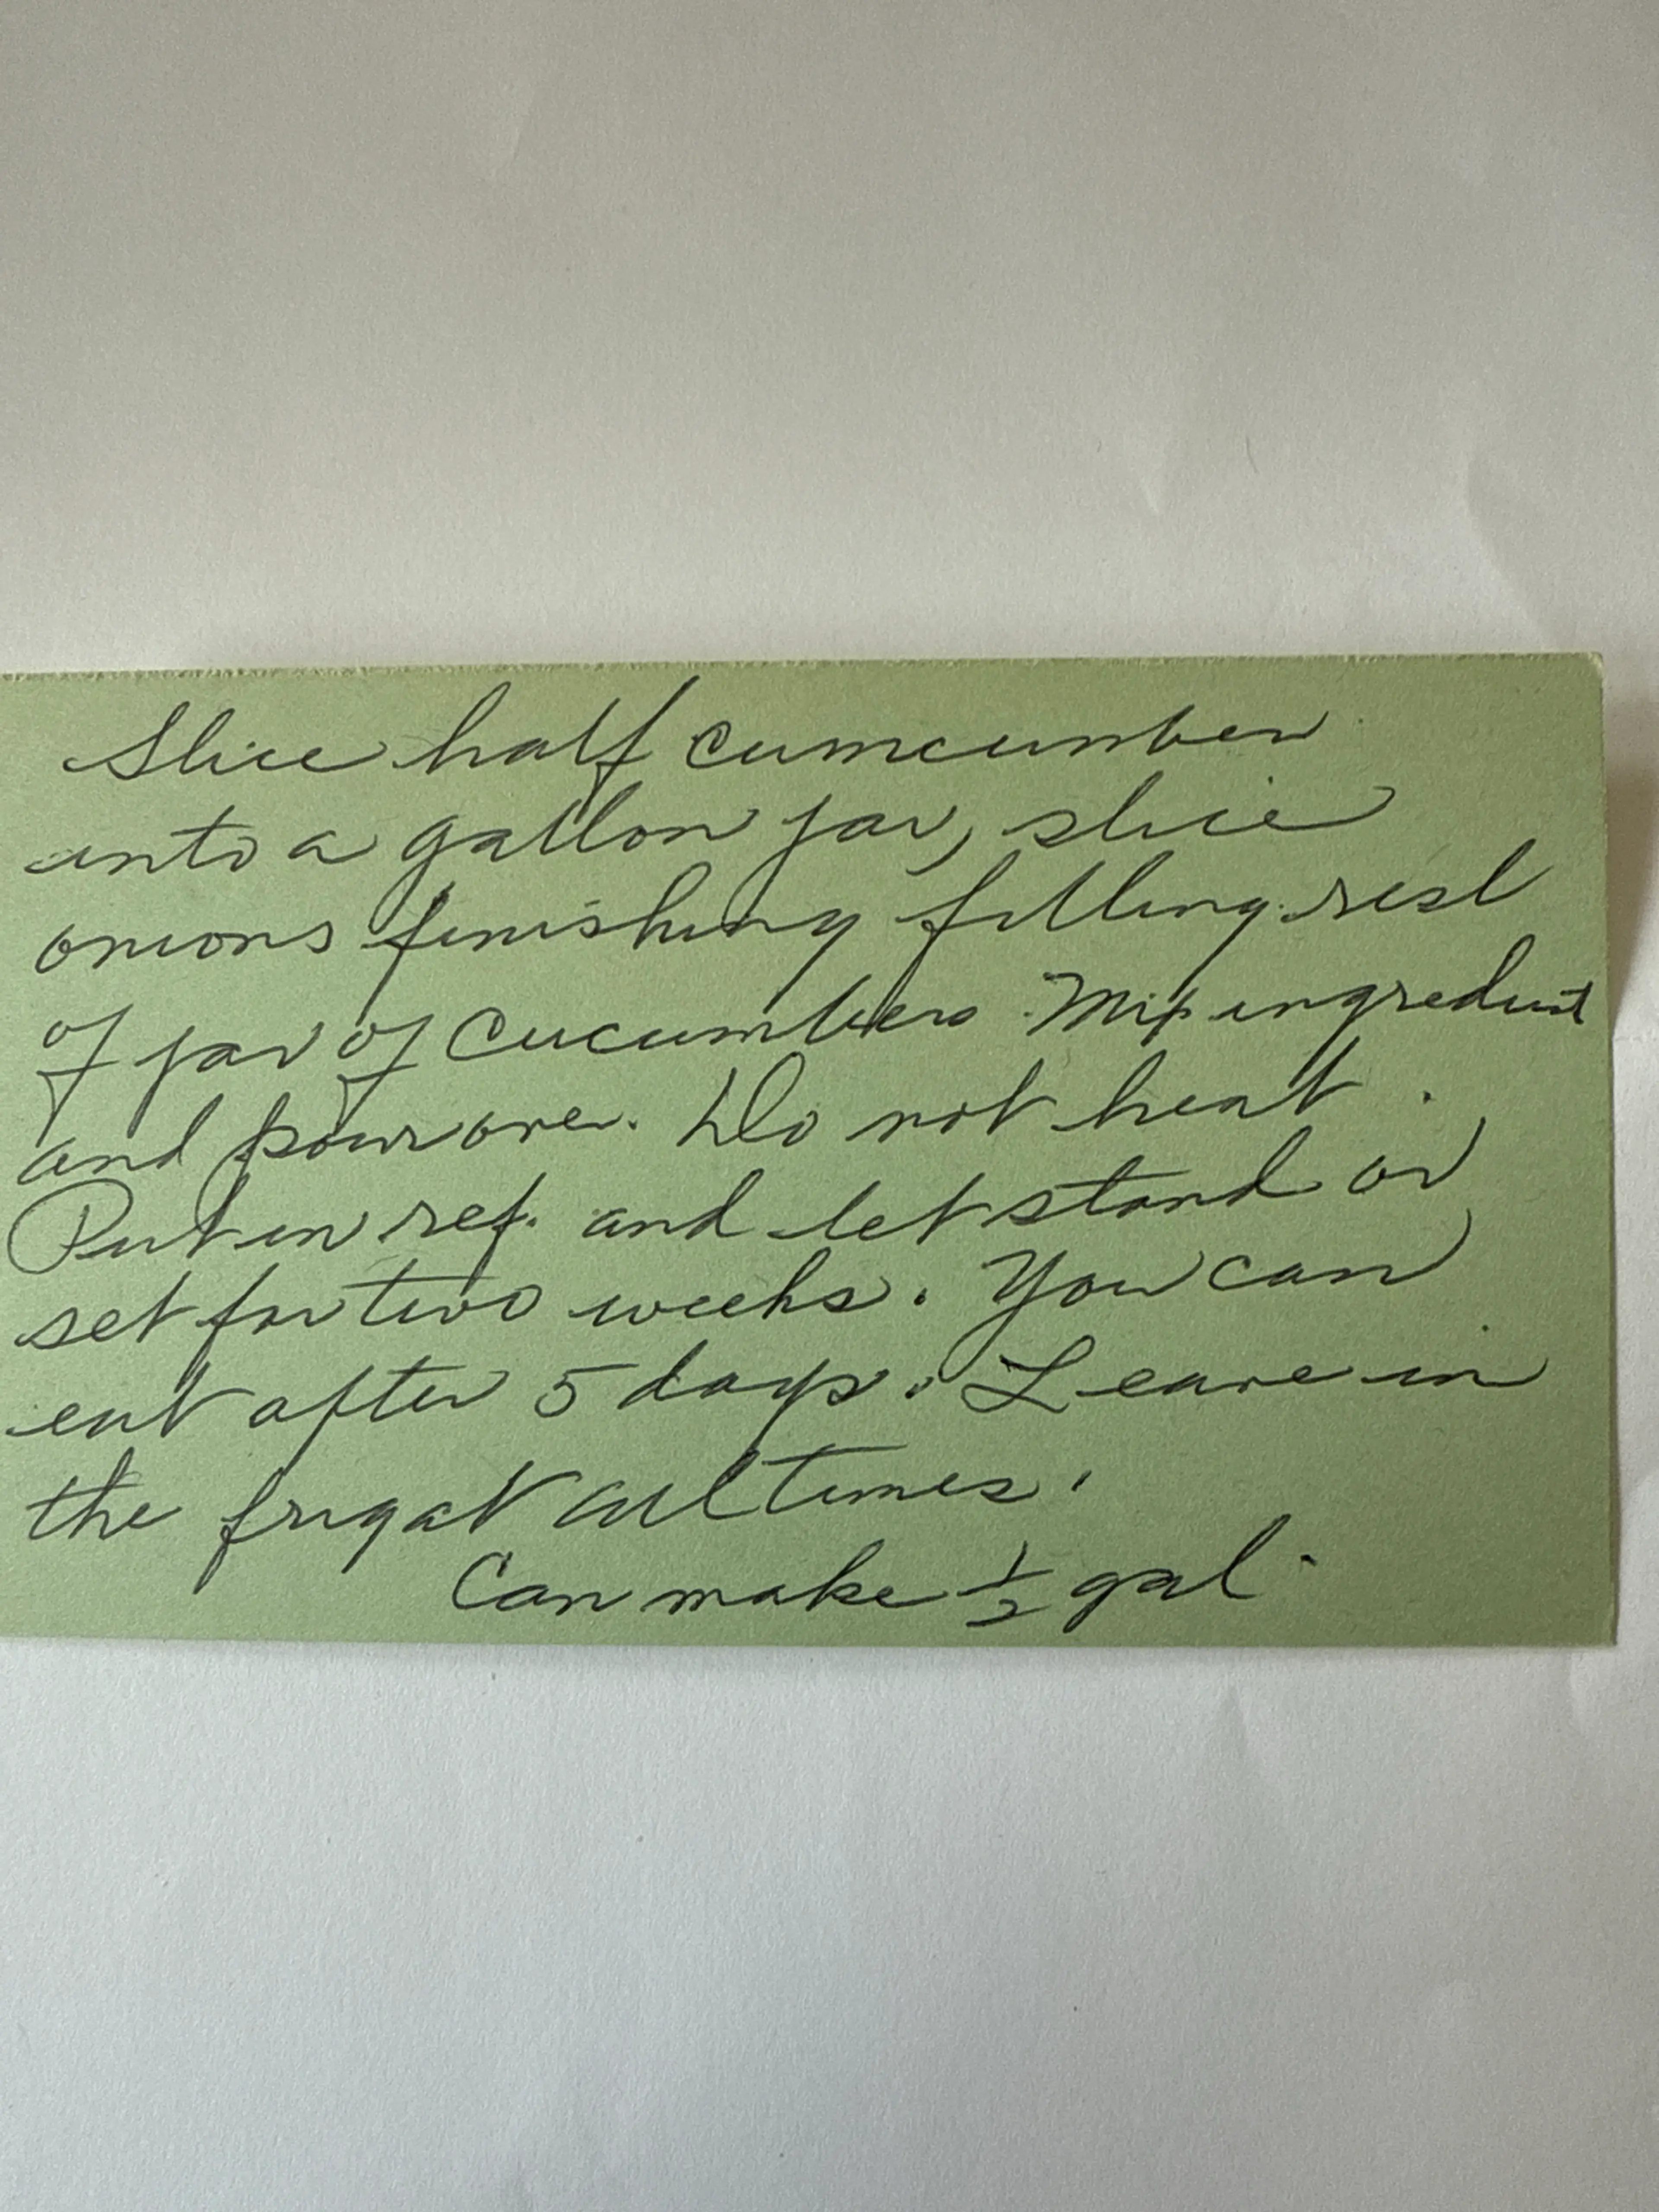 Slice half cumcumber
into a gallon jar, slice
onions finishing filling rest
of jar of cucumbers. Mix ingredient
and pour over. Do not heat.
Put in ref. and let stand or
set for two weeks. You can
eat after 5 days. Leave in
the frigat all times.
Can make 1/2 gal.